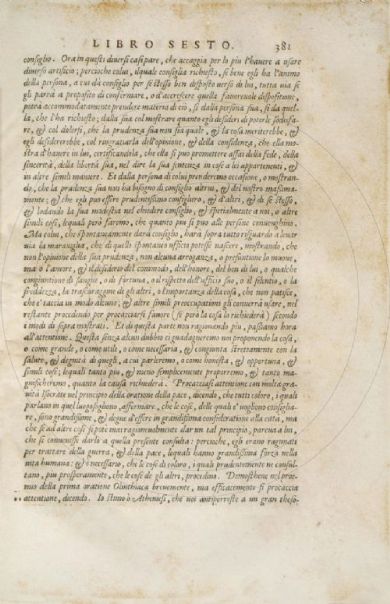 LIBRO SESTO. 381
consiglio. Ora in questi diversi casi pare, che accaggia per lo piu l'havere a usare
diverso artificio; percioche colui, ilquale consiglia richiesto, se bene egli ha l'animo
della persona, a cui dà consiglio per se stesso ben disposto verso di lui, tutta via se
gli parrà a proposito di confermare, o d'accrescere quella favorevole dispositione,
potrà accommodatamente prendere materia di ciò, si dalla persona sua, si da quel-
la, che l'ha richiesto; dalla sua col mostrare quanto egli desideri di poterle sodisfa-
re, & col dolersi, che la prudenza sua non sia quale, & la cosa meriterebbe, &
egli desidererebbe, col ringratiarla dell'opinione, & della considenza, che ella mo-
stra d'havere in lui, certificandola, che ella si può promettere assai della fede, della
sincerità, della libertà sua, nel dire la sua sentenza in cose a lei appartenenti, &
in altre simili maniere. Et dalla persona di colui prenderemo occasione, o mostran-
do, che la prudenza sua non ha bisogno di consiglio altrui, & del nostro massima-
mente; & che egli può essere prudentissimo consigliero, & d'altri, & di se stesso,
& lodando la sua modestia nel chiedere consiglio, & spetialmente a noi, o altre
simili cose, lequali però faremo, che quanto piu si può alle persone convengbino.
Ma colui, che spontaneamente darà consiglio, harà sopra tutto riguardo a levar
via la maraviglia, che di quello spontaneo ufficio potesse nascere, mostrando, che
non l'opinione della sua prudenza, non alcuna arroganza, o presuntione lo muove,
ma o l'amore, & il desiderio del commodo, dell'honore, del ben di lui, o qualche
congiuntione di sangue, o di fortuna, o il rispetto dell'ufficio suo, o il silentio, o la
freddezza, la trascuraggine de gli altri, o l'importanza della cosa, che non patisce,
che e' taccia in modo alcuno; & altre simili preoccupationi gli converrà usare, nel
restante procedendo per procacciarsi favore (se però la cosa lo richiederà) secondo
e modi di sopra mostrati. Et di questa parte non ragionando piu, passiamo hora
all'attentione. Questa senza alcun dubbio ci guadagneremo noi proponendo la cosa,
o come grande, o come utile, o come necessaria, & congiunta strettamente con la
salute, & degnità di quegli, a cui parleremo, o come honesta, & opportuna, &
simili cose; lequali tanto piu, & meno semplicemente proporremo, & tanto ma-
gnificheremo, quanto la causa richiederà. Procacciossi attentione con molta gra-
vità Isocrate nel principio della oratione della pace, dicendo, che tutti coloro, i quali
parlano in quel luogo sogliono affermare, che le cose, delle quali e' vogliono consiglia-
re, sono grandissime, & degne d'essere in grandissima consideratione alla città, ma
che se ad altre cose si puote mai ragionevolmente dar un tal principio, pareva a lui,
che si convenisse darlo a quella presente consulta: percioche, egli erano ragunati
per trattare della guerra, & della pace, lequali hanno grandissima forza nella
vita humana: & è necessario, che le cose di coloro, i quali prudentemente ne consul-
tano, piu prosperamente, che le cose de gli altri, procedino. Demosthene nel proe-
mio della prima oratione Olinthiaca brevemente, ma efficacemente si procaccia
attentione, dicendo. Io stimo ò Atheniesi, che voi antiporreste a un gran theso-